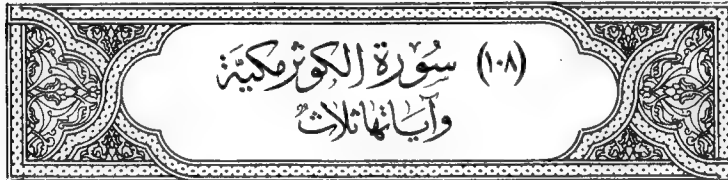 (١٠٨) سُورَة الكوثر مكيَّة
وآيَاتها ثلاثٌ